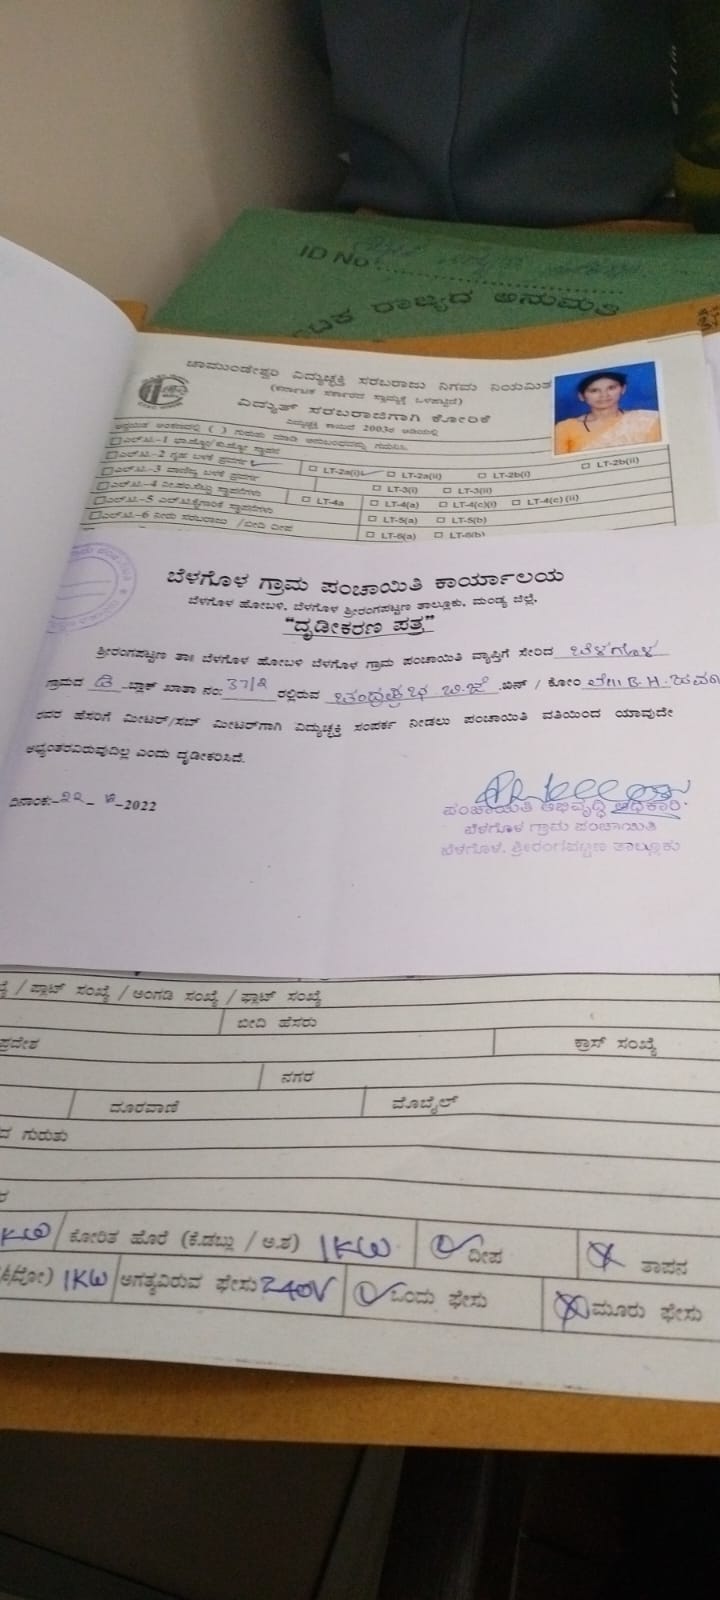 ID No
ರಾಜ್ಯದ ಅನುಮತಿ
ಚಾಮುಂಡೇಶ್ವರಿ ವಿದ್ಯುಚ್ಛಕ್ತಿ ಸರಬರಾಜು ನಿಗಮ ನಿಯಮಿತ
(ಕರ್ನಾಟಕ ಸರ್ಕಾರದ ಸ್ವಾಮ್ಯಕ್ಕೆ ಒಳಪಟ್ಟಿದೆ)
ವಿದ್ಯುತ್ ಸರಬರಾಜಿಗಾಗಿ ಕೋರಿಕೆ
ವಿದ್ಯುಚ್ಛಕ್ತಿ ಕಾಯಿದೆ 2003ರ ಅಡಿಯಲ್ಲಿ
ಎಲ್.ಟಿ.-2 ಗೃಹ ಬಳಕೆ LT-2a(i) LT-2a(ii) LT-2b(i) LT-2b(ii)
ಎಲ್.ಟಿ.-3 ವಾಣಿಜ್ಯ ಬಳಕೆ LT-3(i) LT-3(ii)
ಎಲ್.ಟಿ.-4 ನೀ.ಪಂ.ಸೆಟ್ಟು ಸ್ಥಾವರಗಳು LT-4a LT-4(a) LT-4(c)(i) LT-4(c) (ii)
ಎಲ್.ಟಿ.-5 ಎಲ್.ಟಿ.ಕೈಗಾರಿಕೆ ಸ್ಥಾವರಗಳು LT-5(a) LT-5(b)
ಎಲ್.ಟಿ.-6 ನೀರು ಸರಬರಾಜು /ಬೀದಿ ದೀಪ LT-6(a) LT-6(b)
ಬೆಳಗೊಳ ಗ್ರಾಮ ಪಂಚಾಯಿತಿ ಕಾರ್ಯಾಲಯ
ಬೆಳಗೊಳ ಹೋಬಳಿ, ಬೆಳಗೊಳ ಶ್ರೀರಂಗಪಟ್ಟಣ ತಾಲ್ಲೂಕು, ಮಂಡ್ಯ ಜಿಲ್ಲೆ.
"ದೃಡೀಕರಣ ಪತ್ರ"
ಶ್ರೀರಂಗಪಟ್ಟಣ ತಾ॥ ಬೆಳಗೊಳ ಹೋಬಳಿ ಬೆಳಗೊಳ ಗ್ರಾಮ ಪಂಚಾಯಿತಿ ವ್ಯಾಪ್ತಿಗೆ ಸೇರಿದ ಬೆಳಗೊಳ
ಗ್ರಾಮದ ಡಿ ಬ್ಲಾಕ್ ಖಾತಾ ನಂ: 37/2 ರಲ್ಲಿರುವ ಚಂದ್ರಪ್ರಭ ಬಿ.ಜೆ ಬಿನ್ / ಕೋಂ ಲೇ॥ B.H.
ರವರ ಹೆಸರಿಗೆ ಮೀಟರ್/ಸಬ್ ಮೀಟರ್‌ಗಾಗಿ ವಿದ್ಯುಚ್ಛಕ್ತಿ ಸಂಪರ್ಕ ನೀಡಲು ಪಂಚಾಯಿತಿ ವತಿಯಿಂದ ಯಾವುದೇ
ಅಭ್ಯಂತರವಿರುವುದಿಲ್ಲ ಎಂದು ದೃಡೀಕರಿಸಿದೆ.
ದಿನಾಂಕ:-22- -2022
ಪಂಚಾಯಿತಿ ಅಭಿವೃದ್ಧಿ ಅಧಿಕಾರಿ
ಬೆಳಗೊಳ ಗ್ರಾಮ ಪಂಚಾಯಿತಿ
ಬೆಳಗೊಳ, ಶ್ರೀರಂಗಪಟ್ಟಣ ತಾಲ್ಲೂಕು
/ ಪ್ಲಾಟ್ ಸಂಖ್ಯೆ / ಅಂಗಡಿ ಸಂಖ್ಯೆ / ಫ್ಲಾಟ್ ಸಂಖ್ಯೆ
ಬೀದಿ ಹೆಸರು
ಪ್ರದೇಶ ಕ್ರಾಸ್ ಸಂಖ್ಯೆ
ನಗರ
ದೂರವಾಣಿ ಮೊಬೈಲ್
ಗುರುತು
KW ಕೋರಿತ ಹೊರೆ (ಕೆ.ಡಬ್ಲು / ಅ.ಶ) 1KW ದೀಪ ತಾಪನ
1KW ಅಗತ್ಯವಿರುವ ಫೇಸು 240V ಒಂದು ಫೇಸು ಮೂರು ಫೇಸು